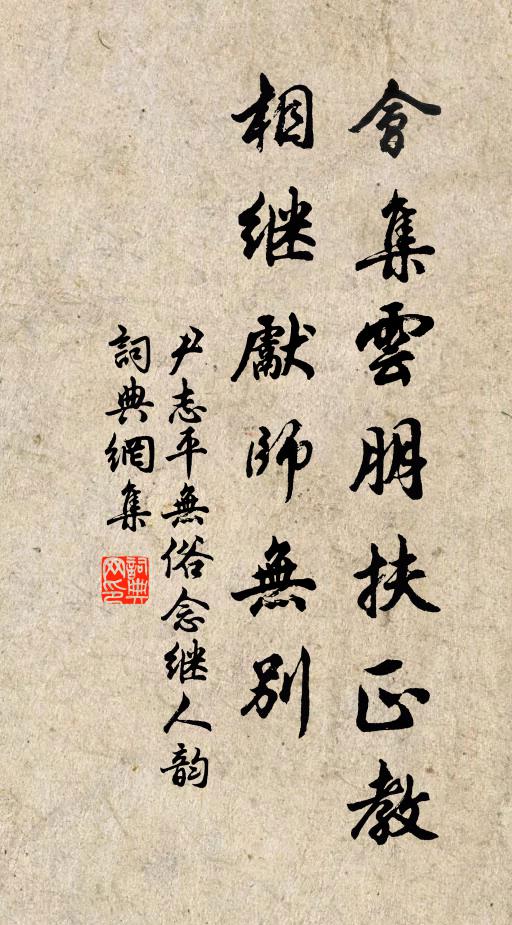 會集雲朋扶正教
相继獻師無別
尹志平無俗念继人韵
詞典網集
詞典网印